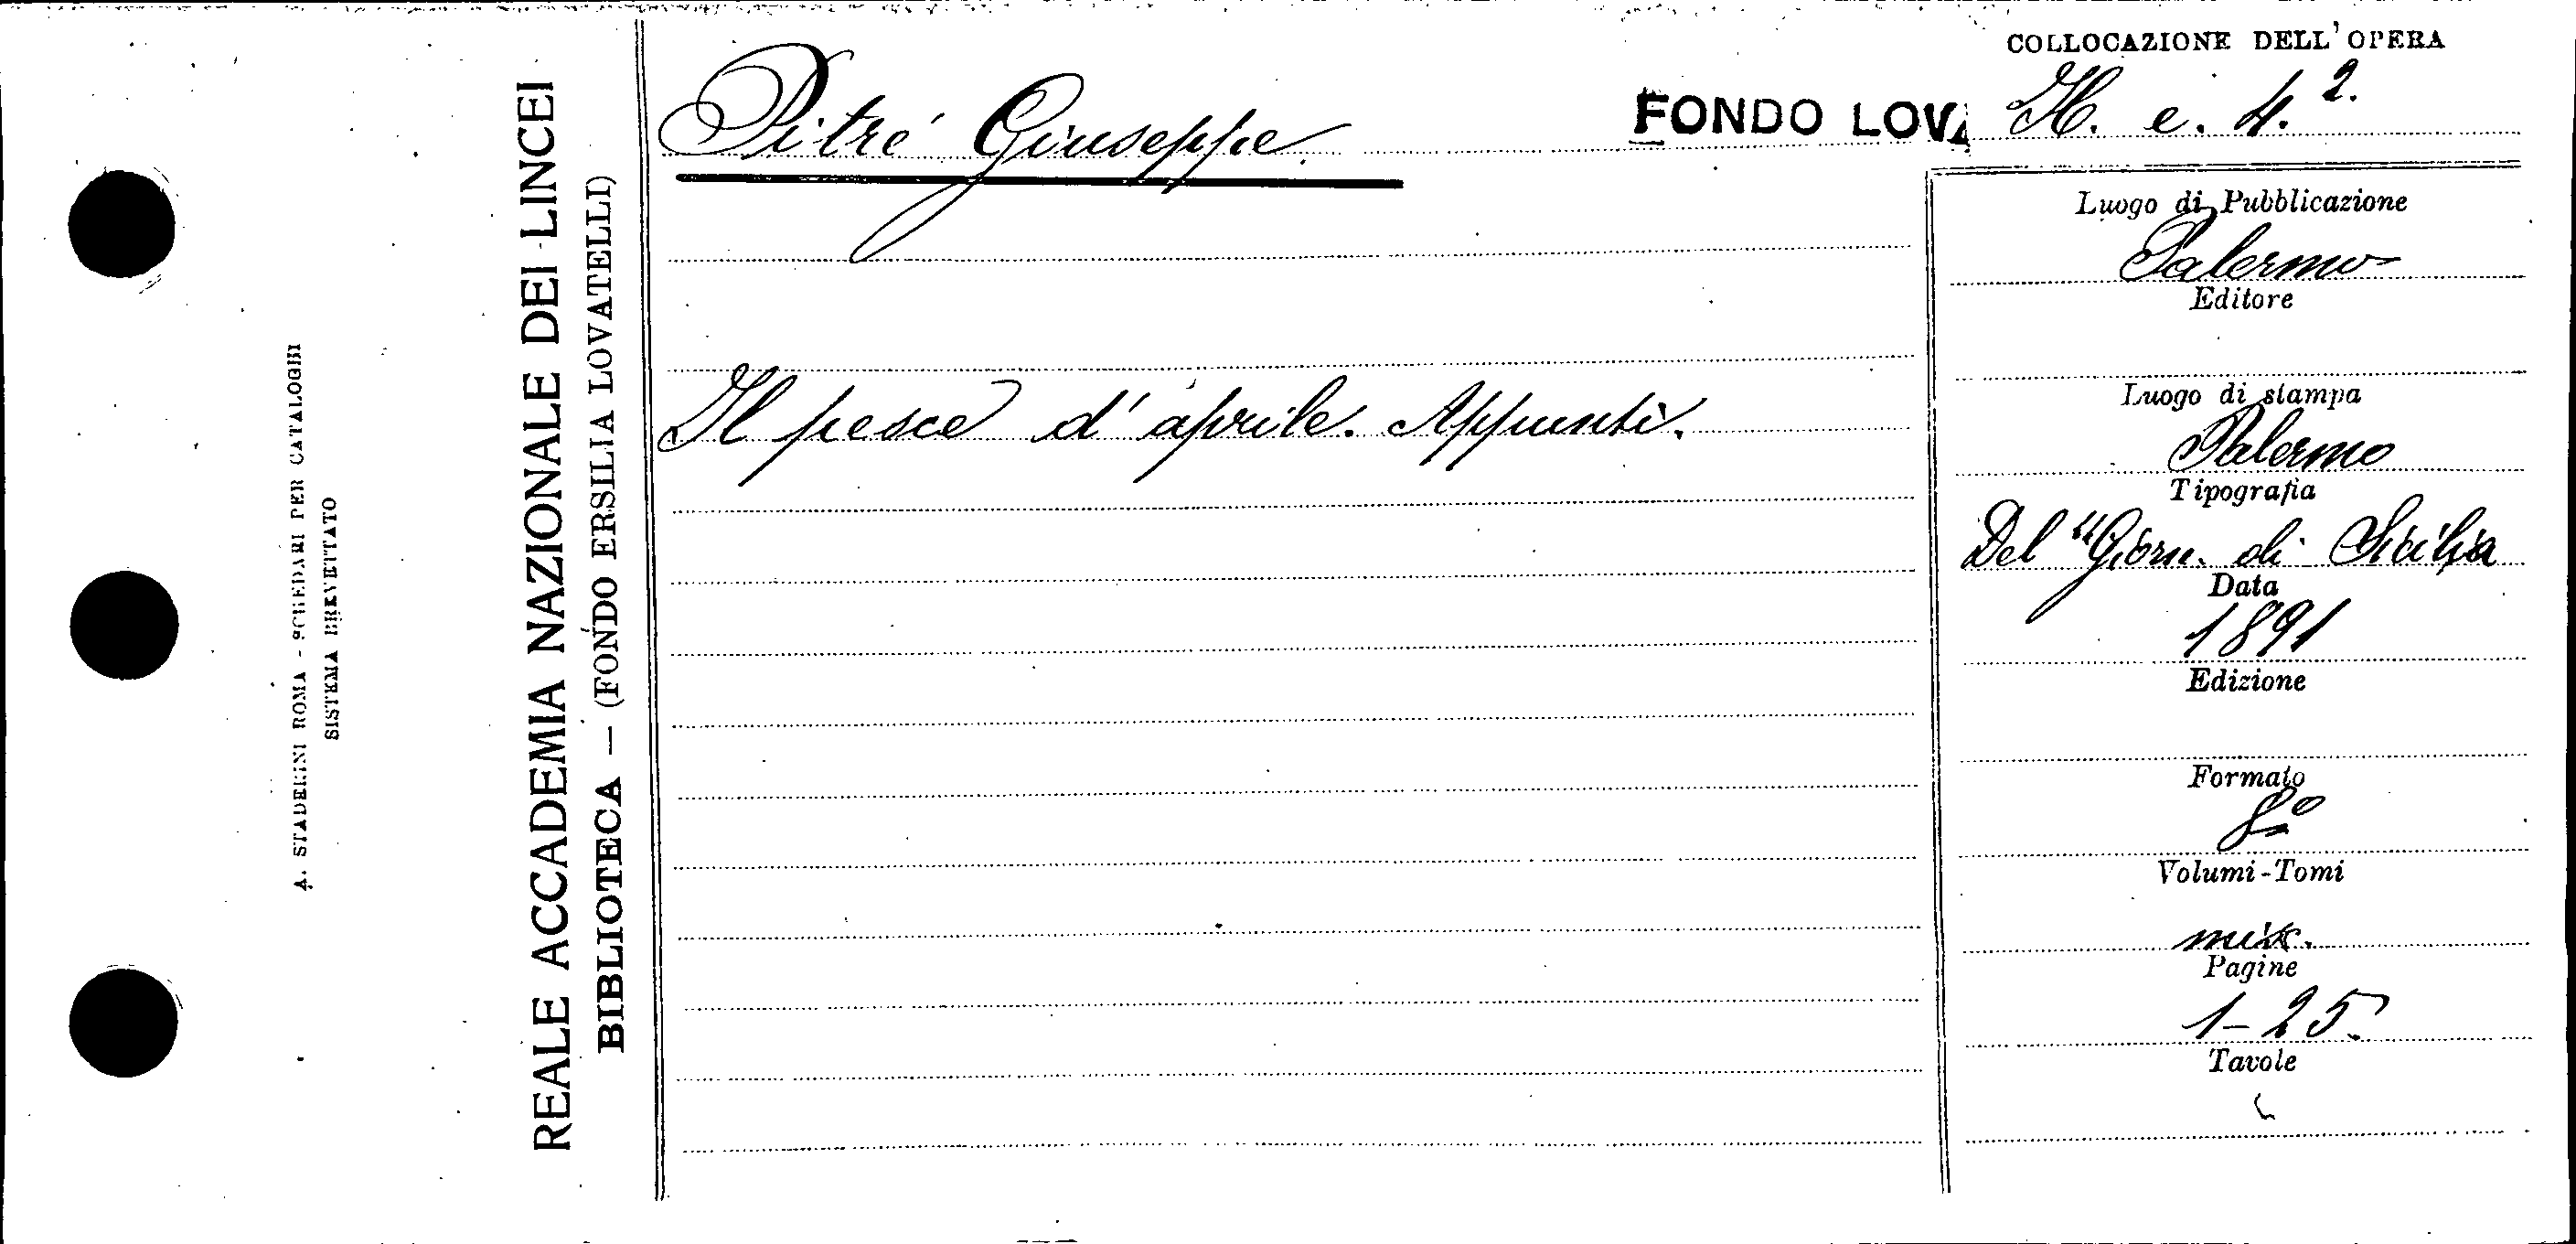 COLLOCAZIONE DELL'OPERA
Pitré Giuseppe
FONDO LOVA
H. e. 4. 2.
Il pesce d'aprile. Appunti.
Luogo di Pubblicazione
Palermo
Editore
Luogo di stampa
Palermo
Tipografia
Del "Giorn. di Sicilia
Data
1891
Edizione
Formato
8º
Volumi-Tomi
Pagine
1-25
Tavole
REALE ACCADEMIA NAZIONALE DEI LINCEI
BIBLIOTECA — (FONDO ERSILIA LOVATELLI)
A. STADERINI ROMA - SCHEDARI PER CATALOGHI
SISTEMA BREVETTATO